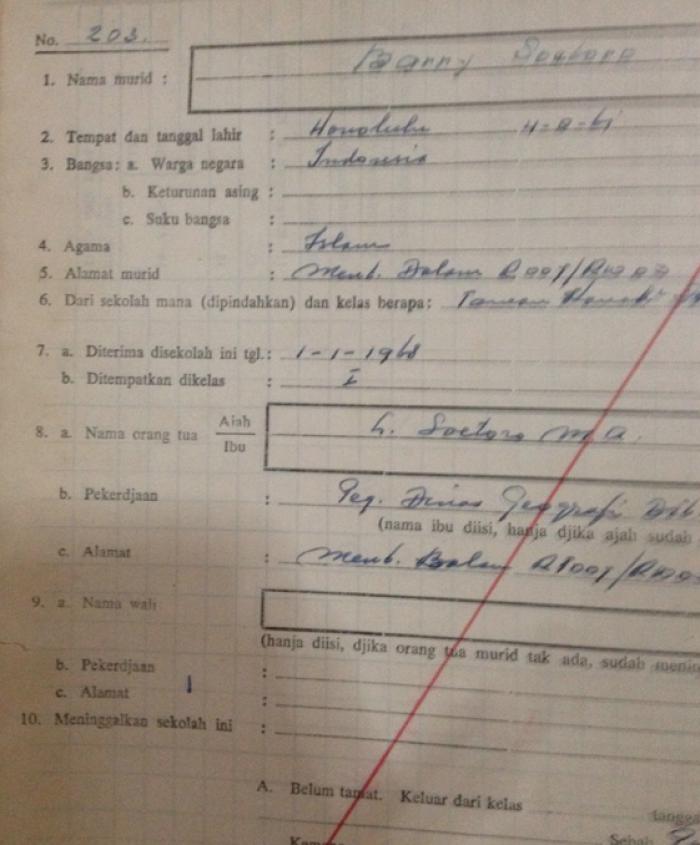 No. 203.
1. Nama murid : Barry Soetoro
2. Tempat dan tanggal lahir : Honolulu 4-8-61
3. Bangsa: a. Warga negara : Indonesia
b. Keturunan asing :
c. Suku bangsa :
4. Agama : Islam
5. Alamat murid : Ment. Dalam R 001/Rw 03
6. Dari sekolah mana (dipindahkan) dan kelas berapa :
7. a. Diterima disekolah ini tgl. : 1-1-1968
b. Ditempatkan dikelas : I
8. a. Nama orang tua Ajah L. Soetoro M A.
Ibu
b. Pekerdjaan : Peg. Dinas Geografi Dit
(nama ibu diisi, hanja djika ajah sudah
c. Alamat : Ment. Dalam
9. a. Nama wali
(hanja diisi, djika orang tua murid tak ada, sudah
b. Pekerdjaan :
c. Alamat :
10. Meninggalkan sekolah ini :
A. Belum tamat. Keluar dari kelas
Sebab